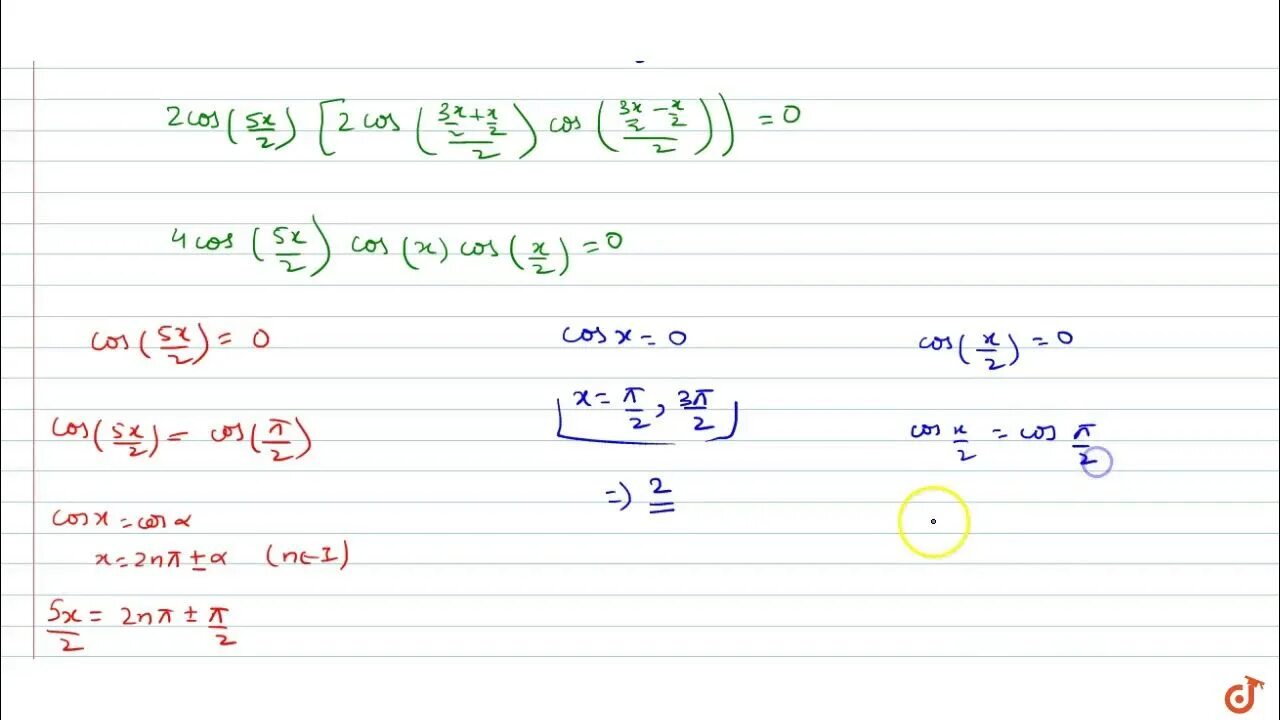 2cos(5x/2) [2 cos ((3x/2 + x/2)/2) cos ((3x/2 − x/2)/2)] = 0
4cos (5x/2) cos (x) cos (x/2) = 0
cos (5x/2) = 0
cos (5x/2) = cos (π/2)
cos x = cos α
x = 2nπ ± α (n∈I)
5x/2 = 2nπ ± π/2
cos x = 0
x = π/2, 3π/2
=) 2
cos (x/2) = 0
cos x/2 = cos π/2